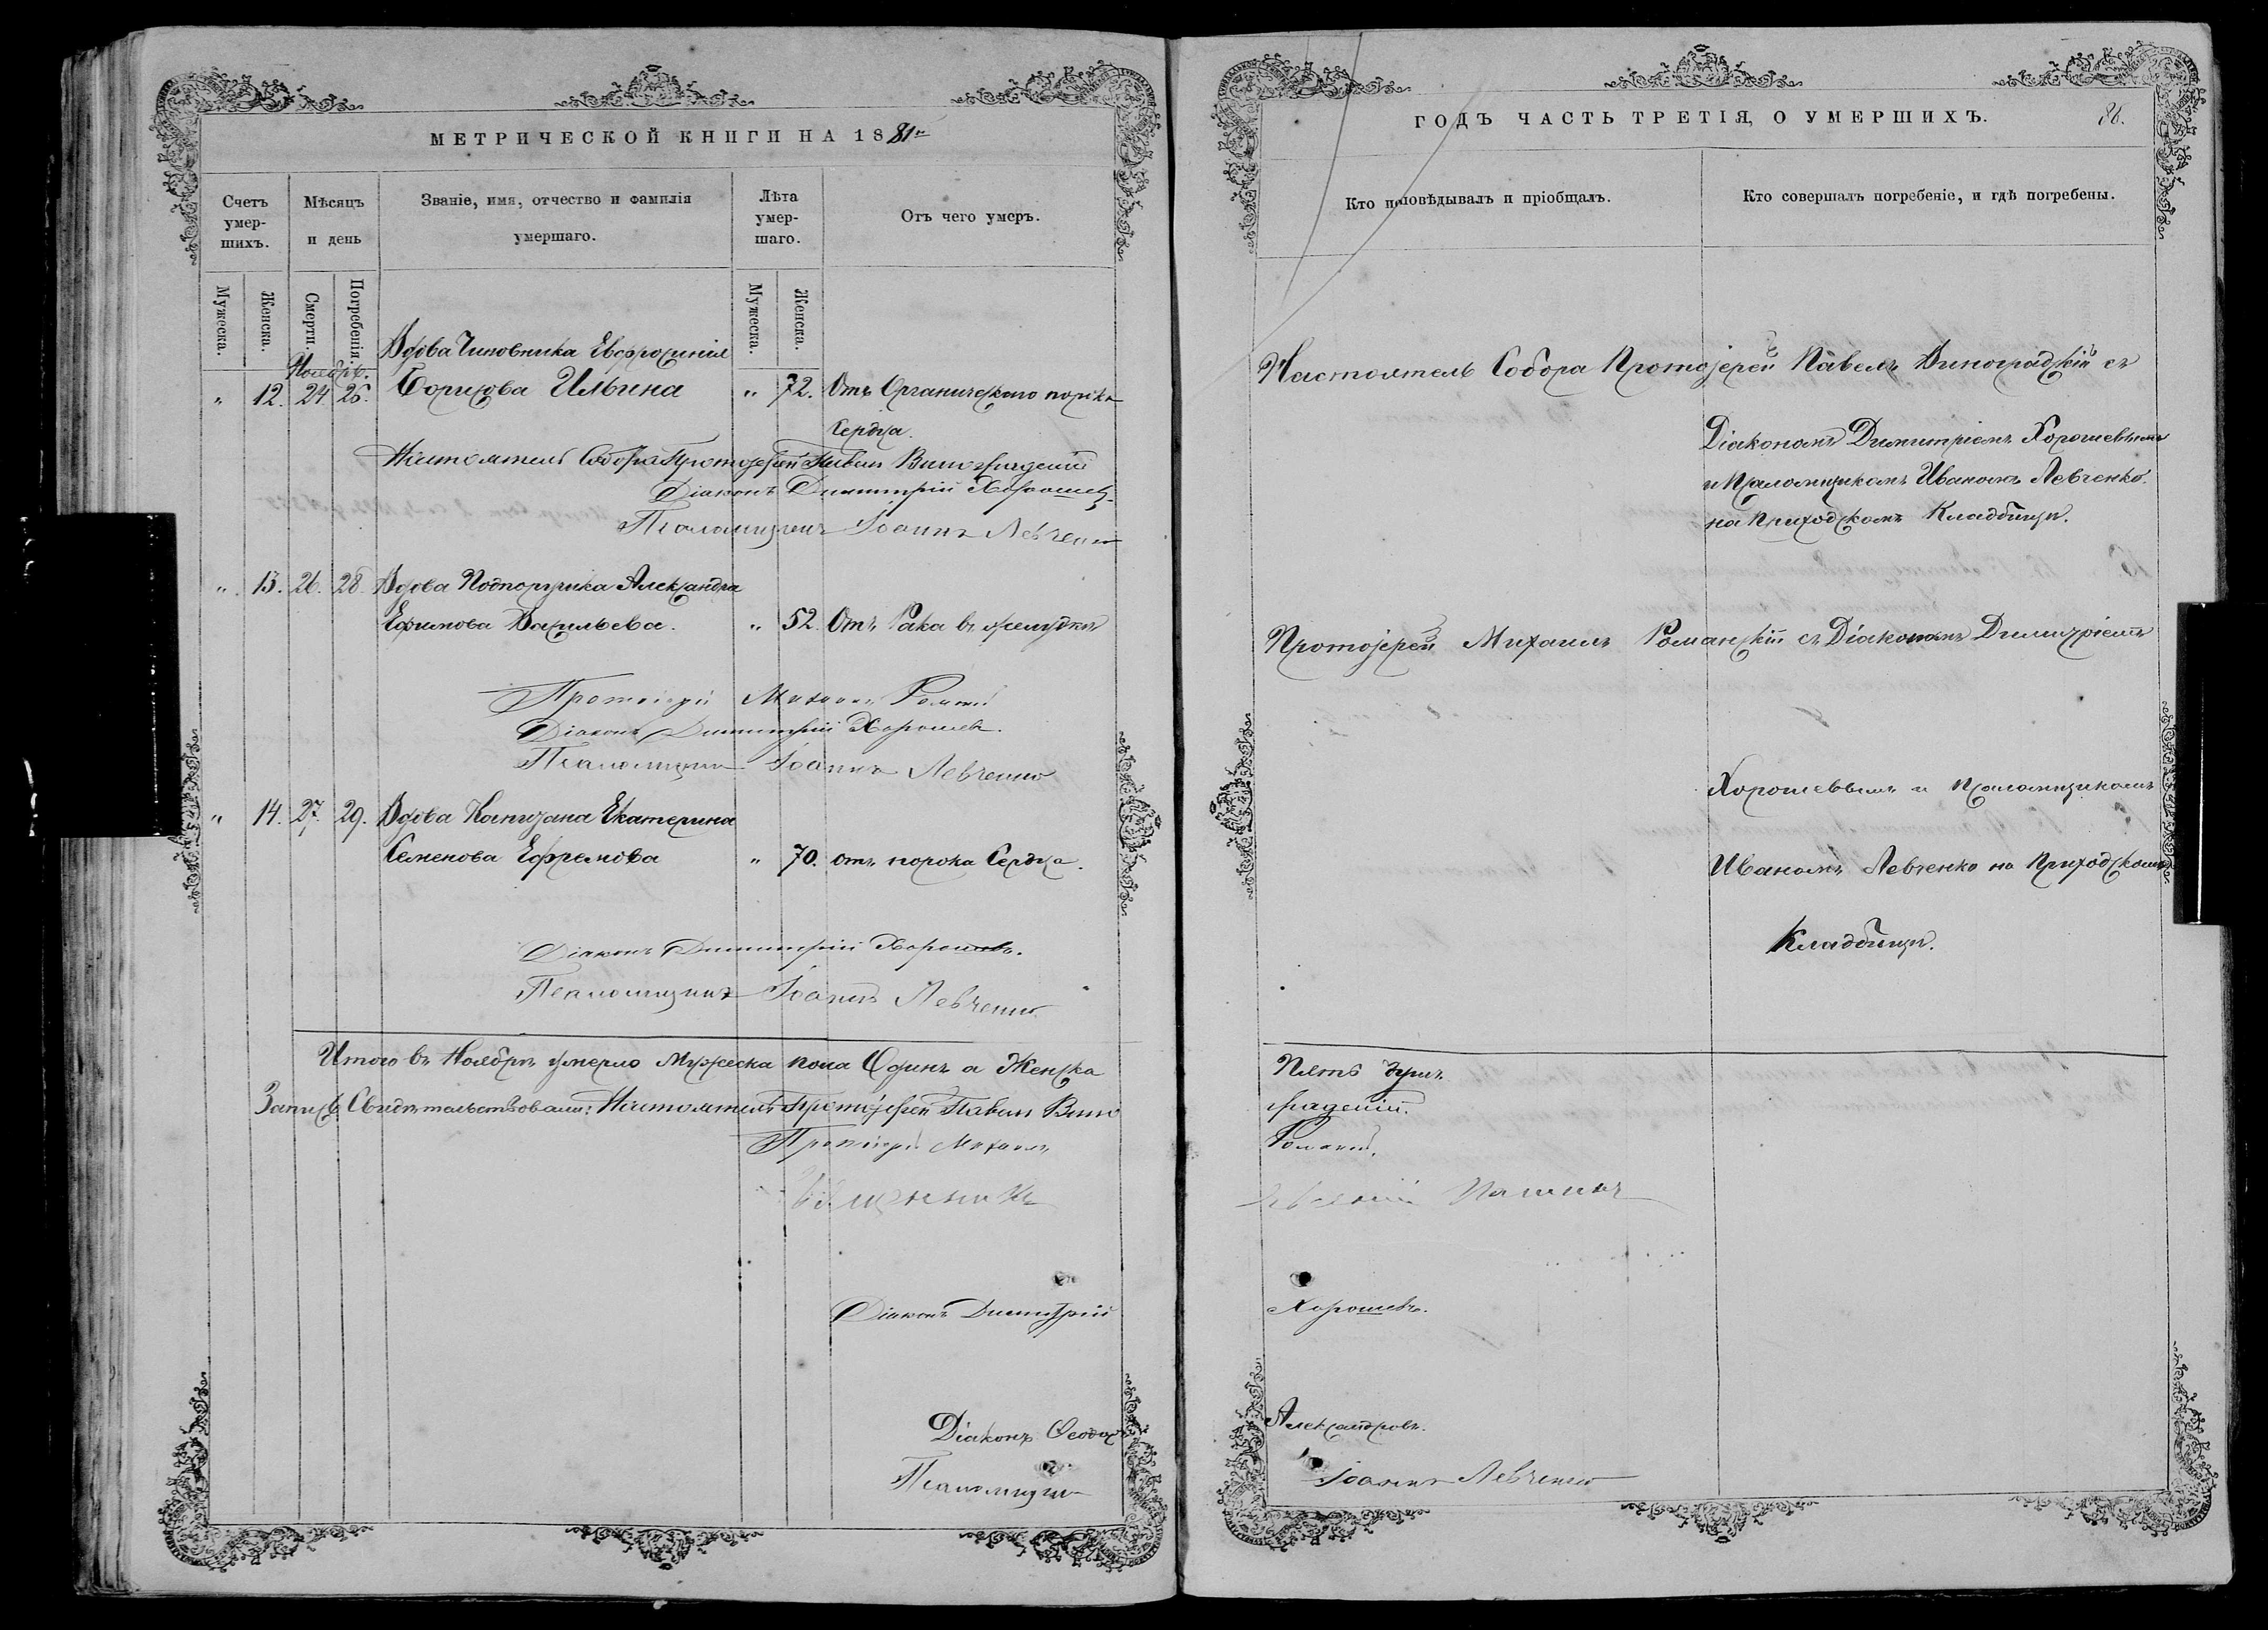 МЕТРИЧЕСКОЙ КНИГИ НА 1881й
Счетъ умерших.
Мѣсяцъ и день
Званіе, имя, отчество и фамилія умершаго.
Лѣта умер-шаго.
Отъ чего умеръ.
Мужеска.
Женска.
Смерти.
Погребенія.
Мужеска.
Женска.
Ноябрь.
Вдова Чиновника Евфросинія
" 12. 24 26. Борисова Ильина " 72. Отъ Органическаго порока
Сердца.
Настоятель Собора Протоіерей Павелъ Виноградскій
Діаконъ Димитрій Хорошевъ
Псаломщикъ Іоаннъ Левченко
" 13. 26. 28. Вдова Подпоручика Александра
Ефимова Васильева. " 52. Отъ Рака въ желудкѣ
Протоіерей Михаилъ
Діаконъ Димитрій Хорошевъ.
Псаломщикъ Іоаннъ Левченко
" 14. 27. 29. Вдова Капитана Екатерина
Семенова Ефремова " 70. отъ порока Сердца.
Діаконъ Димитрій Хорошевъ.
Псаломщикъ Іоаннъ Левченко
Итого въ Ноябрѣ умерло Мужеска пола Одинъ а Женска
Запись Свидѣтельствовали: Настоятель Протоіерей Павелъ Вино
Протоіерей Михаилъ
Священникъ
Діаконъ Димитрій
Діаконъ Ѳеодос
Псаломщикъ
ГОДЪ ЧАСТЬ ТРЕТІЯ, О УМЕРШИХЪ.
86.
Кто исповѣдывалъ и пріобщалъ.
Кто совершалъ погребеніе, и гдѣ погребены.
Настоятель Собора Протоіерей Павелъ Виноградскій съ
Діакономъ Димитріемъ Хорошевымъ
и Псаломщикомъ Иваномъ Левченко
на Приходскомъ Кладбищѣ.
Протоіерей Михаилъ Романскій съ Діакономъ Димитріемъ
Хорошевымъ и Псаломщикомъ
Иваномъ Левченко на Приходскомъ
Кладбищѣ.
Пять душъ.
градскій.
Хорошевъ.
Александровъ.
Іоаннъ Левченко